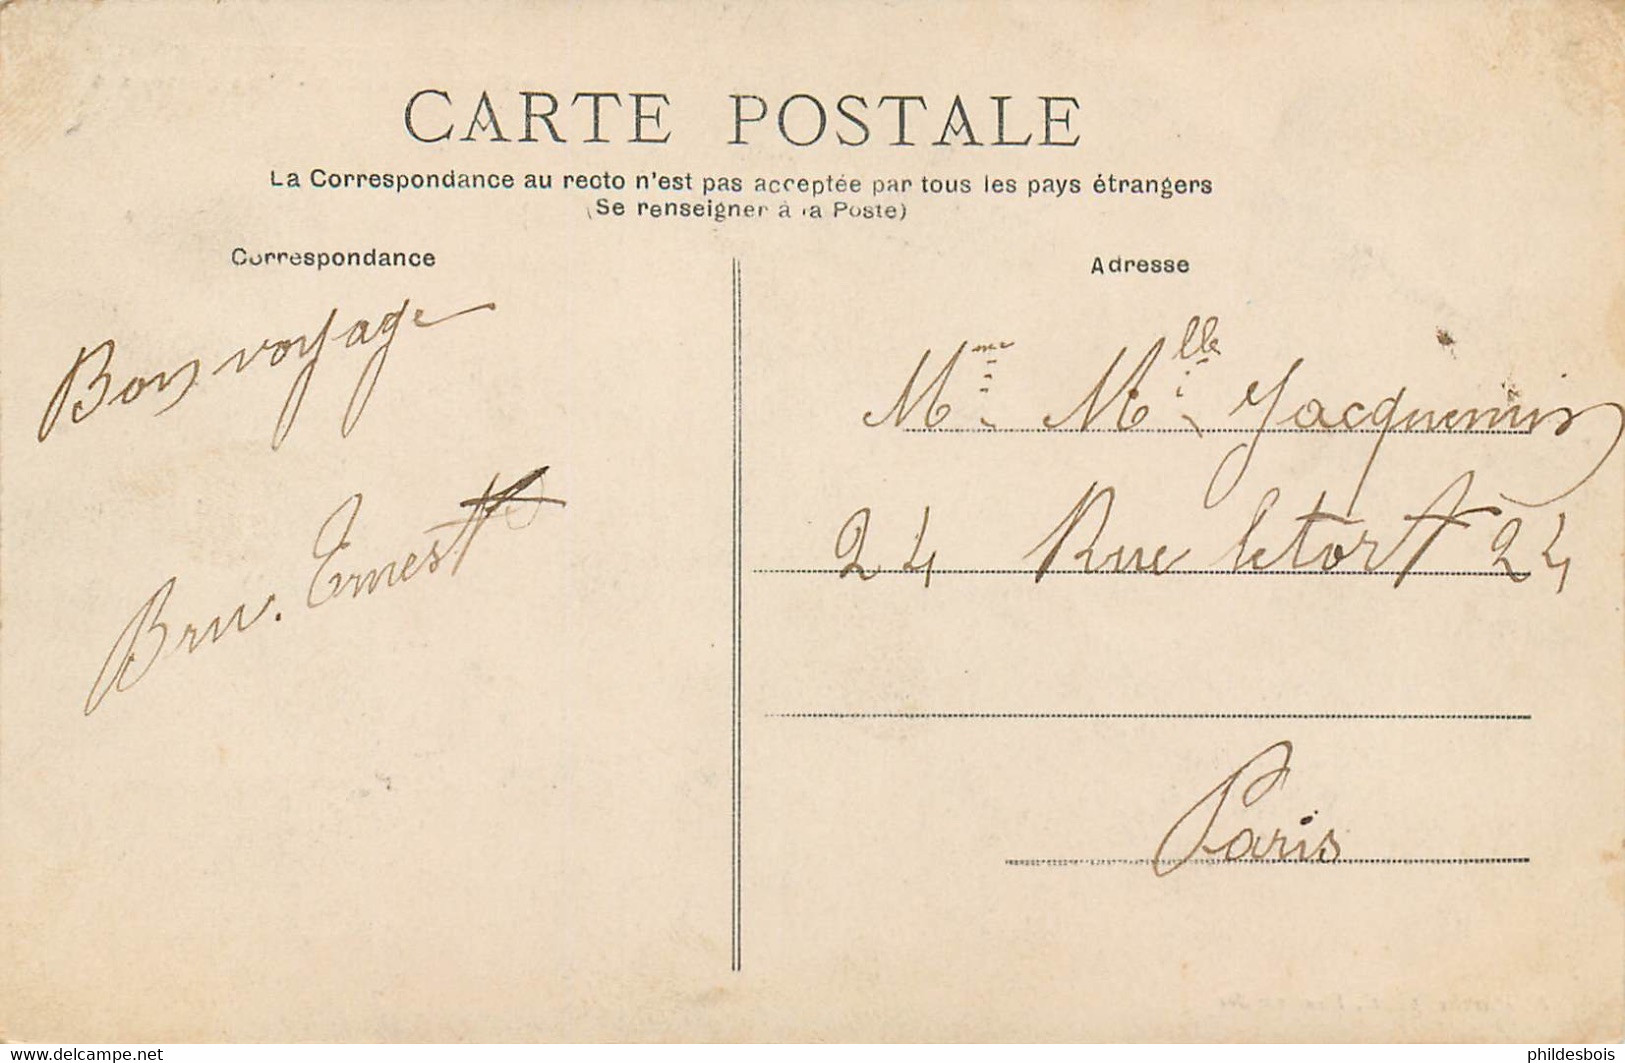 CARTE POSTALE
La Correspondance au recto n'est pas acceptée par tous les pays étrangers
(Se renseigner à la Poste)
Correspondance
Bon voyage
Bru. Ernest
Adresse
Mme Mlle Jacquemin
24 Rue letort 24
Paris
delcampe.net
phildesbois